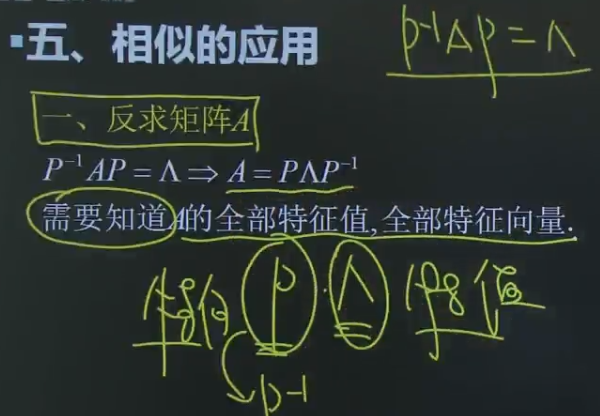 ▪五、相似的应用
P⁻¹AP=Λ
一、反求矩阵A
P⁻¹AP=Λ⇒A=PΛP⁻¹
需要知道A的全部特征值,全部特征向量.
P Λ 值
P⁻¹